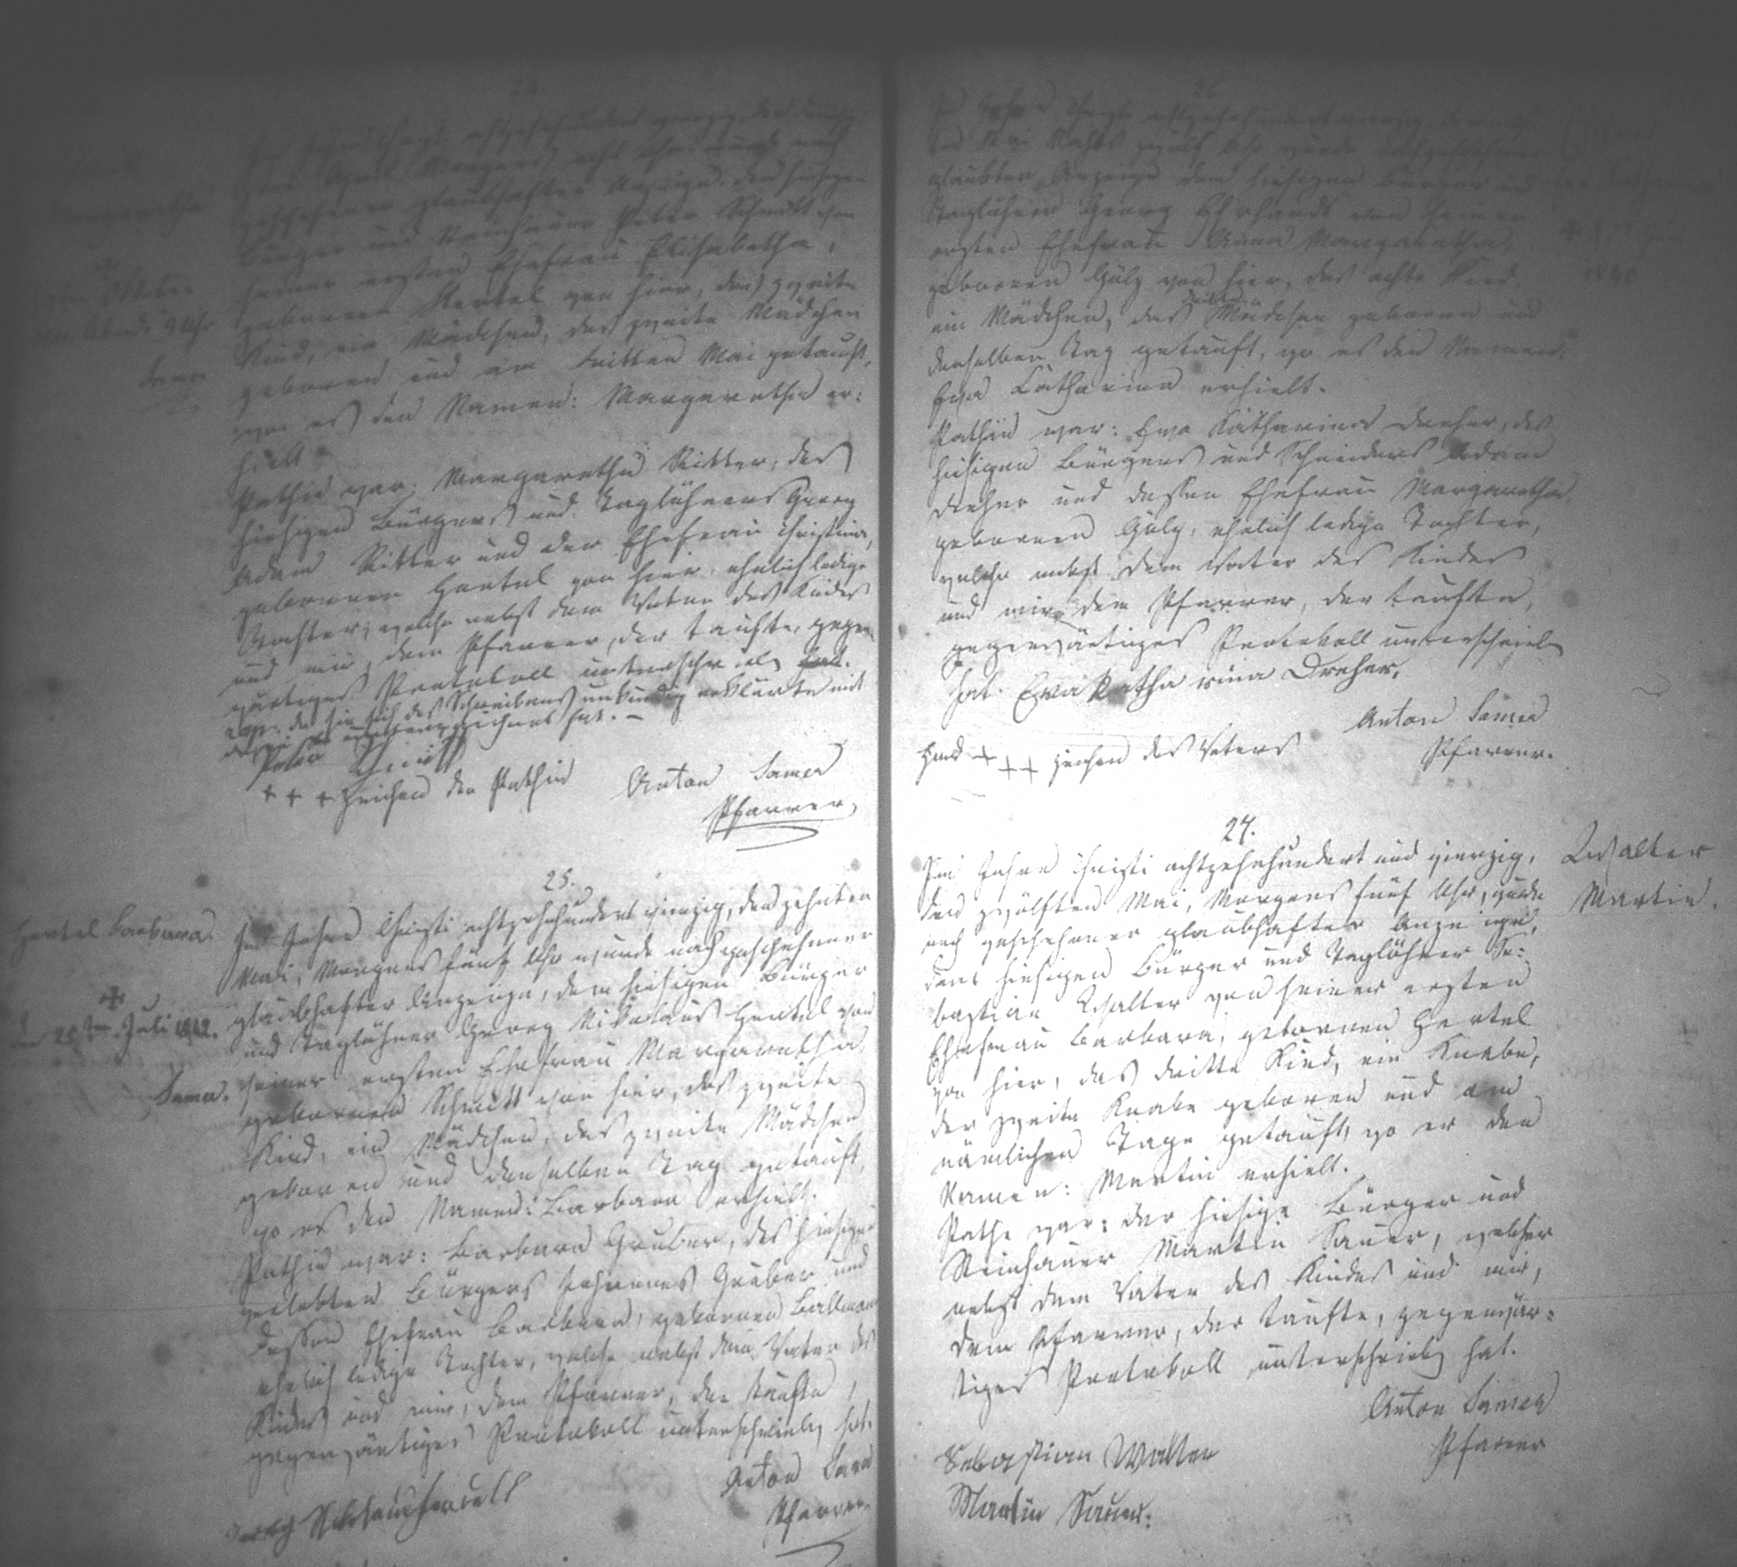 24.
Im Jahre Christi achtzehnhundert vierzig, den
April Morgens acht Uhr wurde nach
geschehener glaubhafter Anzeige, dem hiesigen
Bürger und Steinhauer Peter Schmitt von
seiner ersten Ehefrau Elisabetha,
gebornen Hertel von hier, das zweite
Kind, ein Mädchen, das zweite Mädchen
geboren und am dritten Mai getauft,
wo es den Namen: Margaretha er=
hielt
Pathin war: Margaretha Ritter, des
hiesigen Bürgers und Taglöhners Georg
Adam Ritter und der Ehefrau Christina,
gebornen Hertel von hier, ehelich ledige
Tochter, welche nebst dem Vater des Kindes
und mir, dem Pfarrer, der taufte, gegen=
wärtiges Protokoll unterschrieb hat.
des Schreibens unkundig erklärte mit
unterzeichnet hat. –
Peter Schmitt
+ + + Zeichen der Pathin
Anton Samer
Pfarrer
October
Abends 9 Uhr
Samer
25.
Hertel Barbara.
+
den 20ten Juli 1842.
Samer.
Im Jahre Christi achtzehnhundert vierzig, den zehnten
Mai, Morgens fünf Uhr wurde nach geschehener
glaubhafter Anzeige, dem hiesigen Bürger
und Taglöhner Georg Nikolaus Hertel von
seiner ersten Ehefrau Margaretha
gebornen Schmitt von hier, das zweite
Kind, ein Mädchen, das zweite Mädchen
geboren und denselben Tag getauft,
wo es den Namen: Barbara erhielt.
Pathin war: Barbara Gruber, des hiesigen
verlebten Bürgers Johannes Gruber und
dessen Ehefrau Barbara, gebornen Ballmann
ehelich ledige Tochter, welche nebst dem Vater des
Kindes und mir, dem Pfarrer, der taufte,
gegenwärtiges Protokoll unterschrieb hat.
Georg Nikolaus Hertel
Anton Samer
Pfarrer
26.
Im Jahre Christi achtzehnhundert vierzig, den
Mai Nachts zwölf Uhr wurde nach geschehener
glaubter Anzeige dem hiesigen Bürger und
Taglöhner Georg Ehrhardt von seiner
ersten Ehefrau Anna Margaretha,
gebornen Gölz von hier, das achte Kind
ein Mädchen, das Mädchen geboren und
denselben Tag getauft, wo es den Namen:
Eva Catharina erhielt.
Pathin war: Eva Katharina Dreher, des
hiesigen Bürgers und Schneiders Adam
Dreher und dessen Ehefrau Margaretha,
gebornen Gölz, ehelich ledige Tochter,
welche nebst dem Vater des Kindes
und mir, dem Pfarrer, der taufte,
gegenwärtiges Protokoll unterschrieb
hat. Eva Katharina Dreher,
Anton Samer
Pfarrer.
Hand + + + Zeichen des Vaters
1840
27.
Walter
Martin.
Im Jahre Christi achtzehnhundert und vierzig,
den zwölften Mai, Morgens fünf Uhr, wurde
nach geschehener glaubhafter Anzeige,
dem hiesigen Bürger und Taglöhner Se=
bastian Walter von seiner ersten
Ehefrau Barbara, gebornen Hertel
von hier, das dritte Kind, ein Knabe,
der zweite Knabe geboren und am
nämlichen Tage getauft, wo er den
Namen: Martin erhielt.
Pathe war: der hiesige Bürger und
Steinhauer Martin Sauer, welcher
nebst dem Vater des Kindes und mir,
dem Pfarrer, der taufte, gegenwär=
tiges Protokoll unterschrieb hat.
Anton Samer
Pfarrer
Sebastian Walter
Martin Sauer.